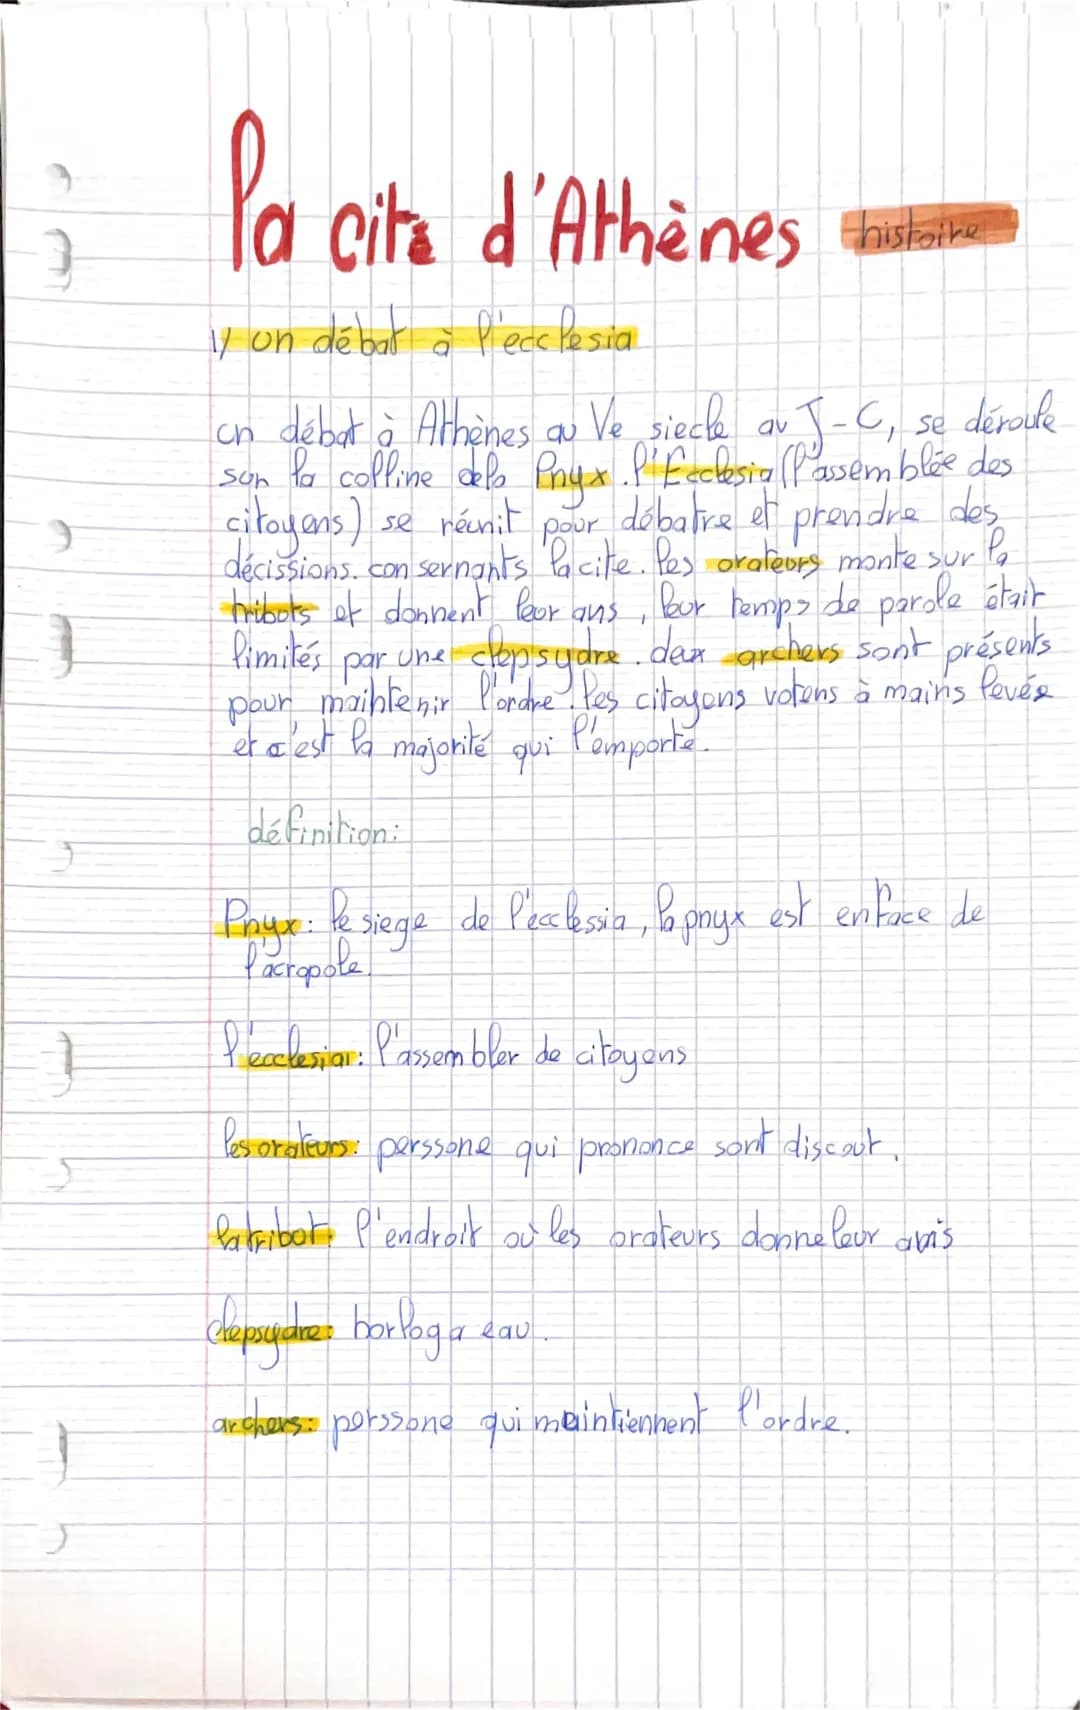 la cité d'Athènes histoire
1/ un débat à l'ecclesia
un débat à Athènes au Ve siecle av J-C, se déroule
sur la colline de la Pnyx. l'Ecclesia (l'assemblée des
citoyens) se réunit pour débatre et prendre des
décissions. con sernants la cite. les orateurs monte sur la
tribots et donnent leur avis, leur temps de parole était
limités par une clepsydre. deux archers sont présents
pour maihtenir l'ordre. les citoyens votens à mains levée
et c'est la majorité qui l'emporte.
définition:
Pnyx: le siege de l'ecclessia, la pnyx est en face de
l'acropole.
l'ecclesiar: l'assembler de citoyens
les orateurs: perssone qui prononce sont discour.
la tribot: l'endroit où les orateurs donne leur avis
clepsydre: horlog a eau.
archers: perssone qui maintiennent l'ordre.